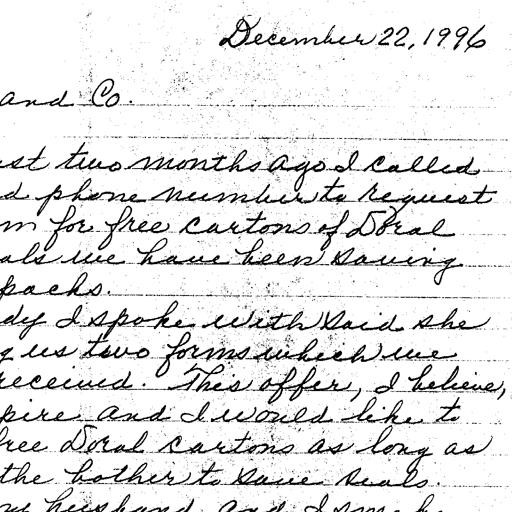 December 22, 1996
and Co.
st two months ago I called
d phone number to request
m for free cartons of Doral
als we have been saving
packs.
dy I spoke with said she
g us two forms which we
received. This offer, I believe,
pire and I would like to
free Doral cartons as long as
the bother to save seals.
husband and I smoke